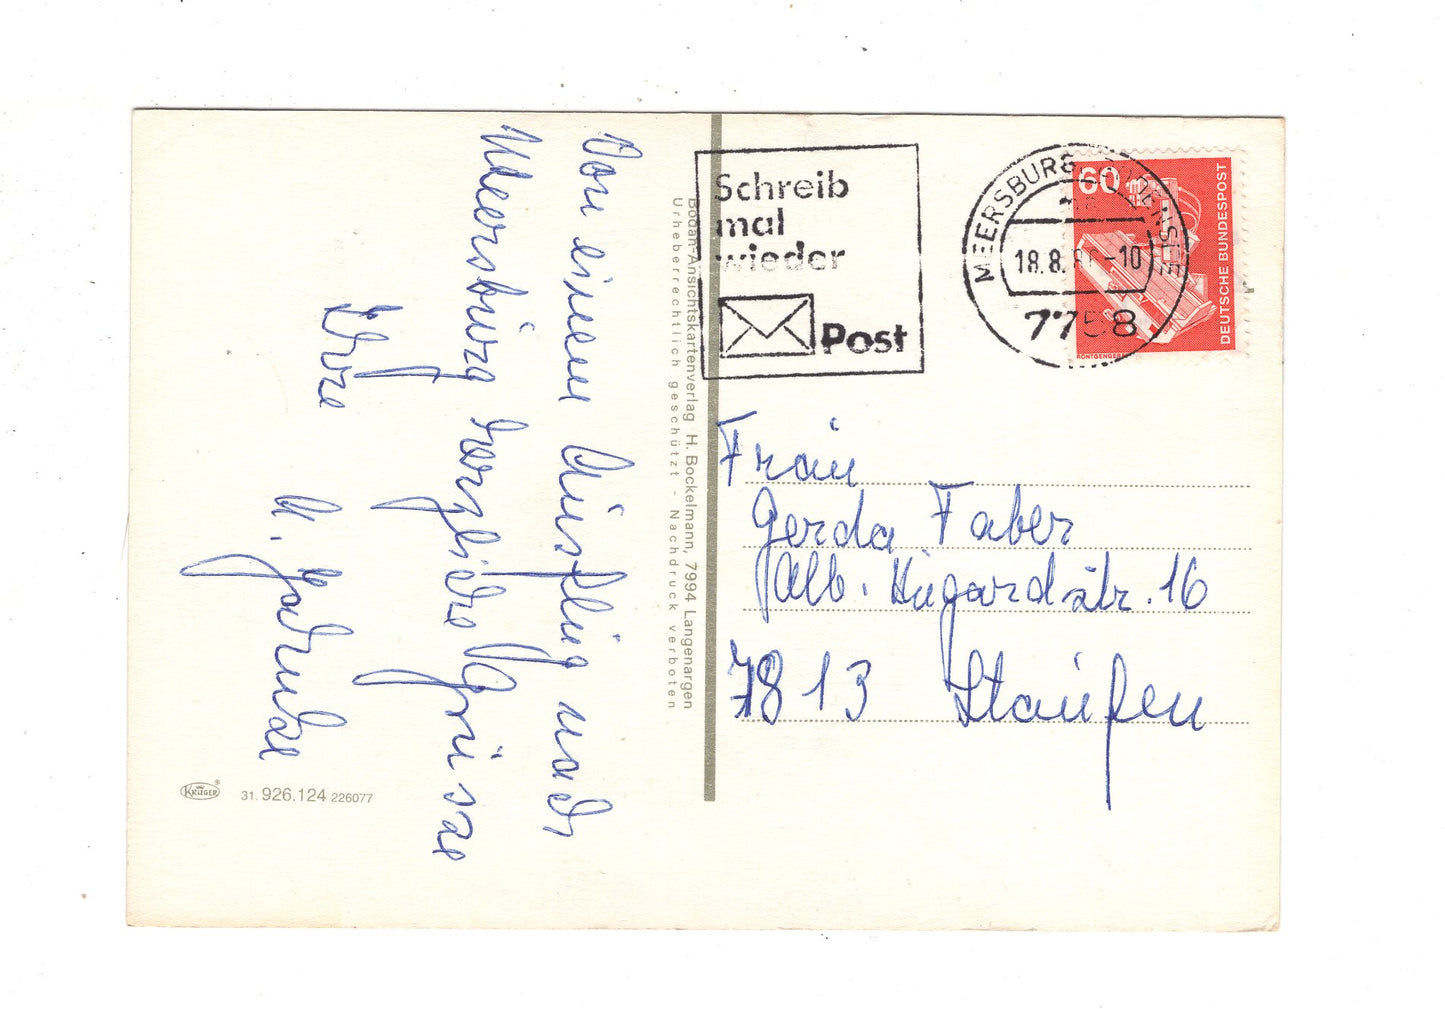 Von einem Ausflug nach
Meersburg herzliche Grüsse
Ihre
Bodan-Ansichtskartenverlag H. Bockelmann, 7994 Langenargen
Urheberrechtlich geschützt - Nachdruck verboten
KRÜGER
31. 926.124 226077
Schreib
mal
wieder
Post
MEERSBURG, BODENSEE
18.8. -10
7758
60
DEUTSCHE BUNDESPOST
Frau
Gerda Faber
Alb. Hugardstr. 16
7813 Staufen